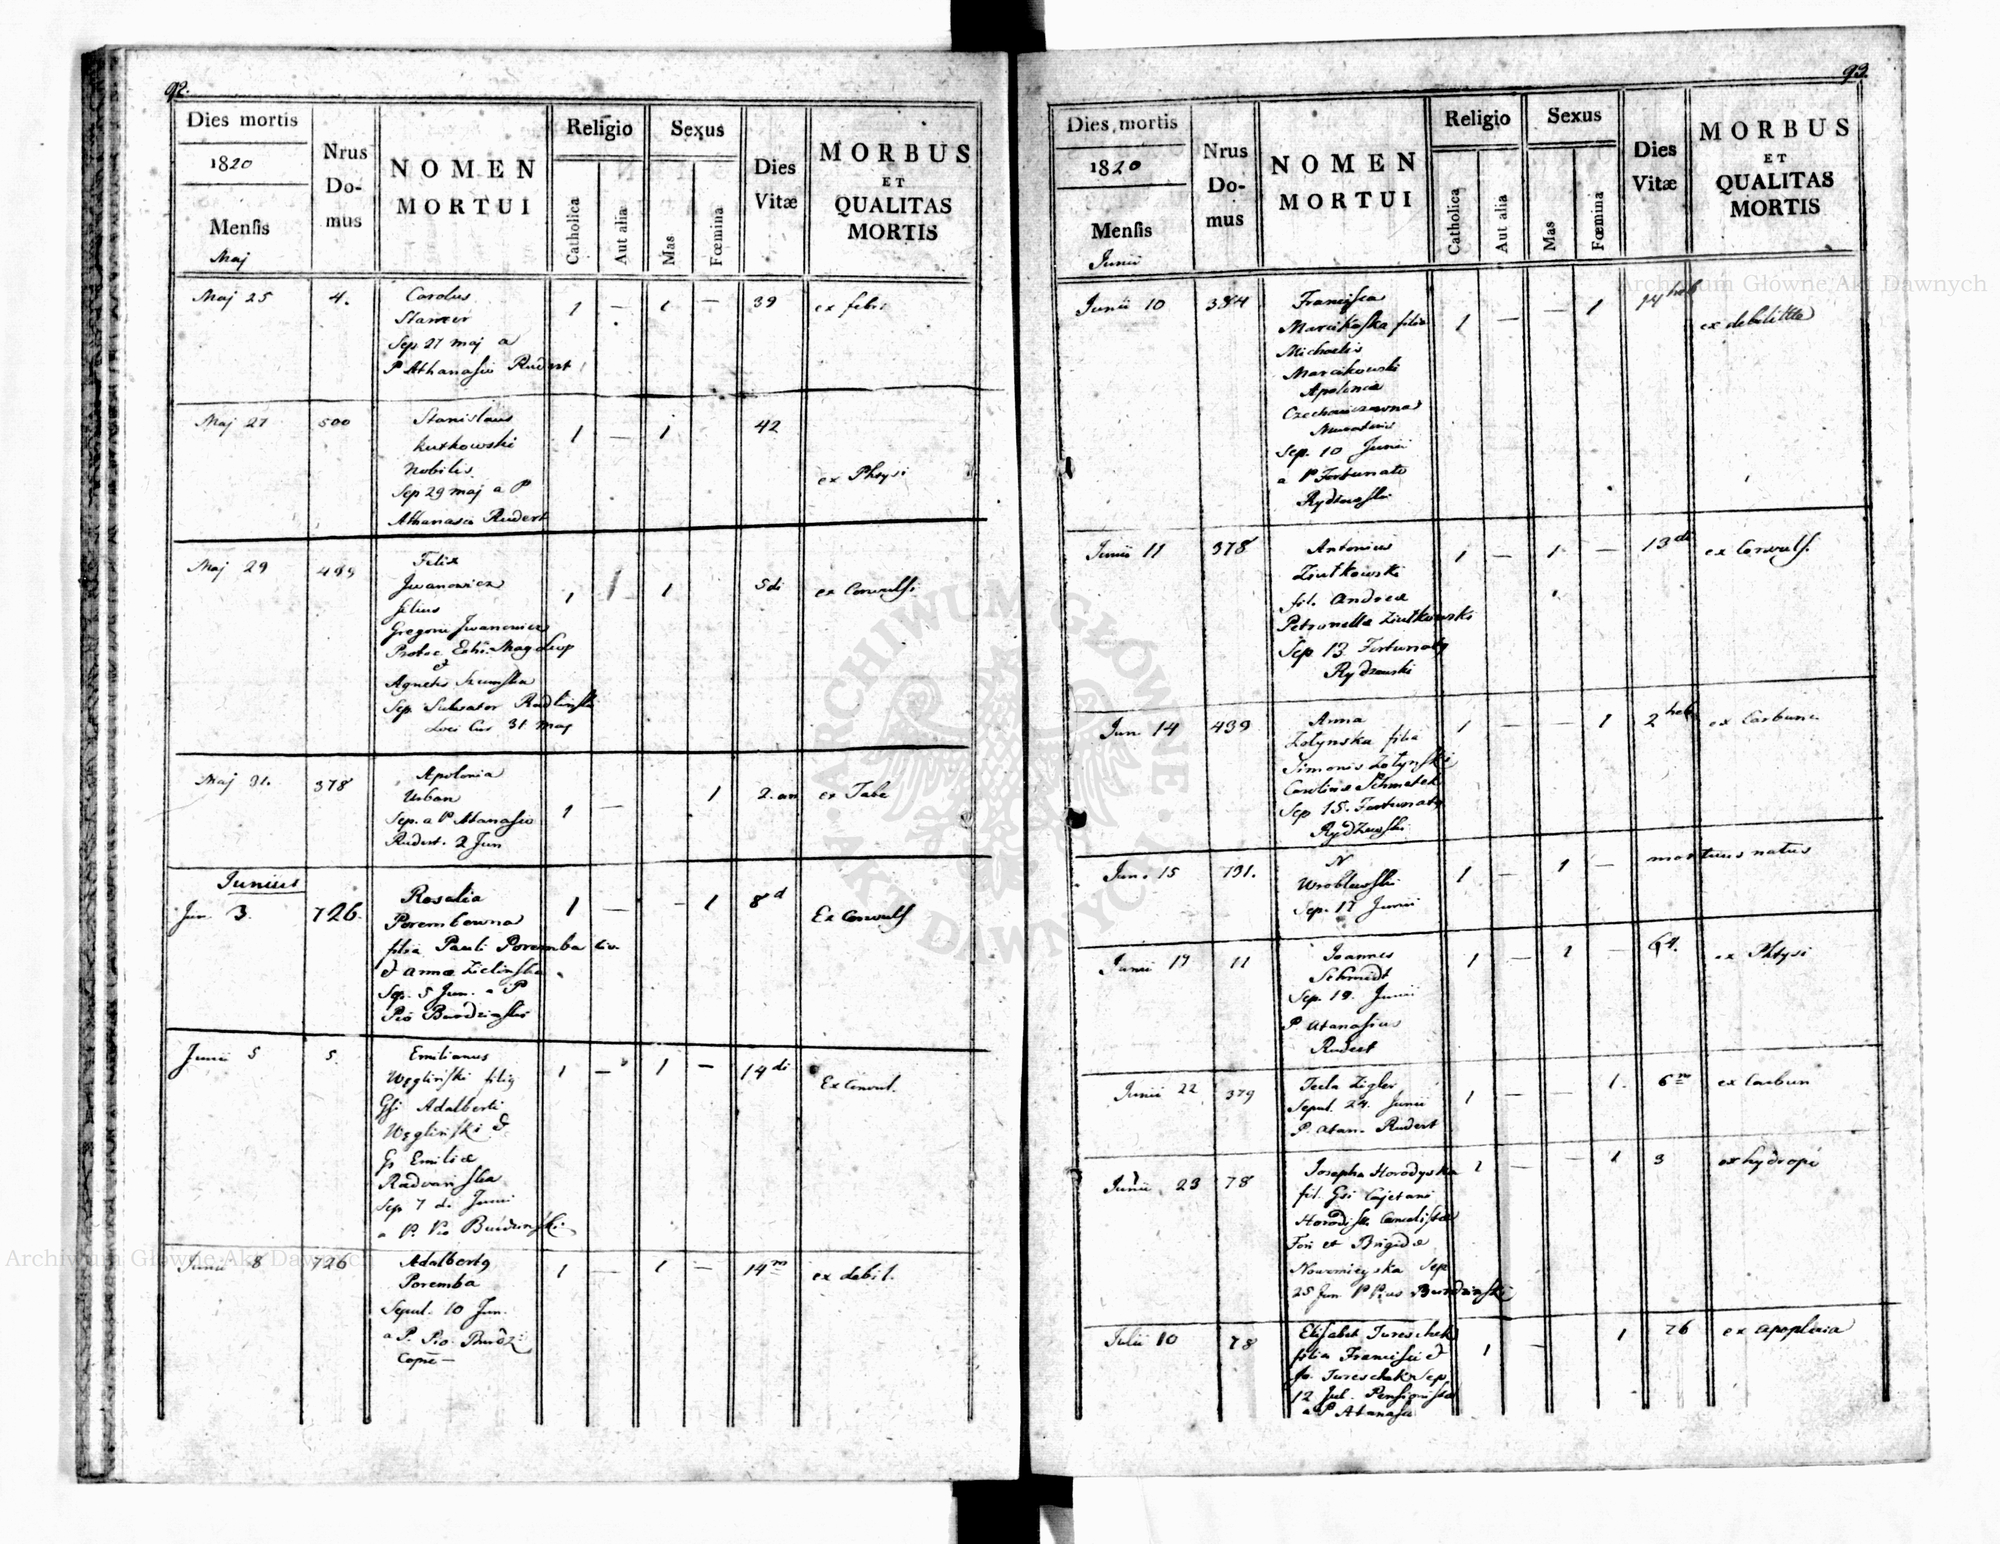 92.
Dies mortis
1820
Mensis
Maj
Nrus
Do-
mus
NOMEN
MORTUI
Religio
Catholica
Aut alia
Sexus
Mas
Fœmina
Dies
Vitæ
MORBUS
ET
QUALITAS
MORTIS
Maj 25 4. Carolus 1 — 1 — 39 ex febri
Sep 27 maj a
P Athanasio Rudert
Maj 27 500 Stanislaus 1 — 1 42 ex Phtysi
Kutkowski
Nobilis
Sep 29 maj a P
Athanasio Rudert
Maj 29 499 Felix 1 1 5 di ex Convulsi
Jwanowicz
filius
Gregorii Jwanowicz
et
Agnetis Szumska
Loci Cur 31 Maj
Maj 31. 378 Apolonia 1 — 1 2. an ex Tabe
Urban
Sep. a P Atanasio
Rudert. 2 Jun
Junius
Jun 3. 726. Rosalia 1 — — 1 8 d Ex Convuls
Porembowna
filia Pauli Poremba
& Annæ Zielinska
Sep. 5 Jun. a P
Pio Burdzinski
Junii 5 5. Emilianus 1 — 1 — 14 di Ex Convul.
Węgliński
Gsi Adalberti
Węgliński &
Gs Emiliæ
Radwanska
Sep 7 d. Junii
a P. Pio Burdzinski
Junii 8 726 Adalbertg 1 — 1 — 14 m ex debil.
Poremba
Sepul. 10 Jun.
a P. Pio Burdzi
93.
Dies mortis
1820
Mensis
Junii
Nrus
Do-
mus
NOMEN
MORTUI
Religio
Catholica
Aut alia
Sexus
Mas
Fœmina
Dies
Vitæ
MORBUS
ET
QUALITAS
MORTIS
Junii 10 384 Francisca 1 — — 1 14 heb ex debilitte
Marcikoska filia
Michaelis
Marcikowski
Apolonia
Sep. 10 Junii
a P Fortunato
Rydzewski
Junii 11 378 Antonius 1 — 1 — 13 di ex Convuls.
Ziutkowski
fil. Andreæ
Petronella Ziutkowski
Sep. 13 Fortunatg
Rydzewski
Jun 14 439 Anna 1 — — 1 2 heb ex Carbunc.
Zotynska filia
Simonis Zotynski
Sep 15. Fortunatg
Rydzewski
Jun. 15 791. N 1 — 1 — mortuus natus
Wroblewski
Sep. 17 Junii
Junii 17 11 Joannes 1 — 1 — 64. ex Phtysi
Schmidt
Sep. 19. Junii
P. Atanasius
Rudert
Junii 22 379 Tecla Zigler 1 — — 1. 6 m ex Carbun
Sepul. 24. Junii
P. Atan. Rudert
Junii 23 78 Josepha Horodyska 1 — — 1 3 ex hydropi
fil. Gsi Cajetani
Fori et Brigidæ
25 Jun P Pius Burdzinski
Julii 10 78 Elisabet Tureschek 1 — 1 76 ex apoplexia
filia Francisci &
Jo. Tureschek Sep.
12 Jul. Pensionista
a P Atanasio
Archiwum Główne Akt Dawnych
Archiwum Główne Akt Dawnych
ARCHIWUM GŁÓWNE · AKT DAWNYCH ·